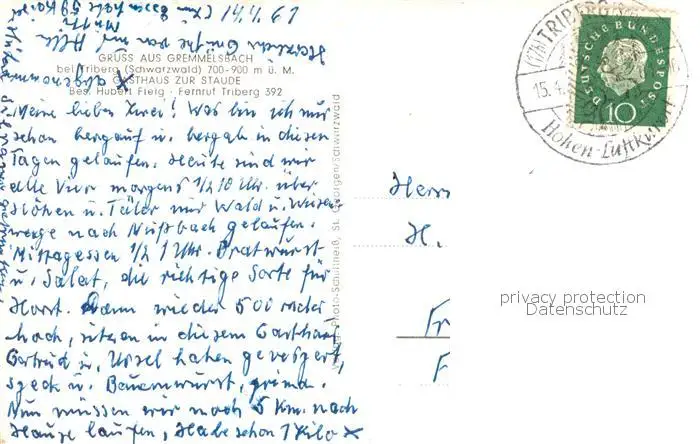 14.4.61
Herzliche Grüße von
GRUSS AUS GREMMELSBACH
bei Triberg (Schwarzwald) 700-900 m ü. M.
GASTHAUS ZUR STAUDE
Bes. Hubert Fleig · Fernruf Triberg 392
abgenommen X
Meine lieben Zwei! Was bin ich nur
schon bergauf u. bergab in diesen
Tagen gelaufen. Heute sind wir
alle Vier morgens 1/2 10 Uhr über
Höhen u. Täler nur Wald u. Wiesen
wege nach Nußbach gelaufen.
Mittagessen 1/2 1 Uhr. Bratwurst
u. Salat, die richtige Sorte für
Horst. Dann wieder 500 meter
hoch, sitzen in diesem Gasthaus
Gertrud u. Ursel haben gevespert,
speck u. Bauernwurst, prima.
Nun müssen wir noch 5 Km. nach
Hause laufen, Habe schon 1 Kilo X
ST. Georgen/Schwarzwald
Herrn
H.
Fr
F
TRIBERG
15.4.
Höhen-Luftkurort
DEUTSCHE BUNDESPOST
10
privacy protection
Datenschutz